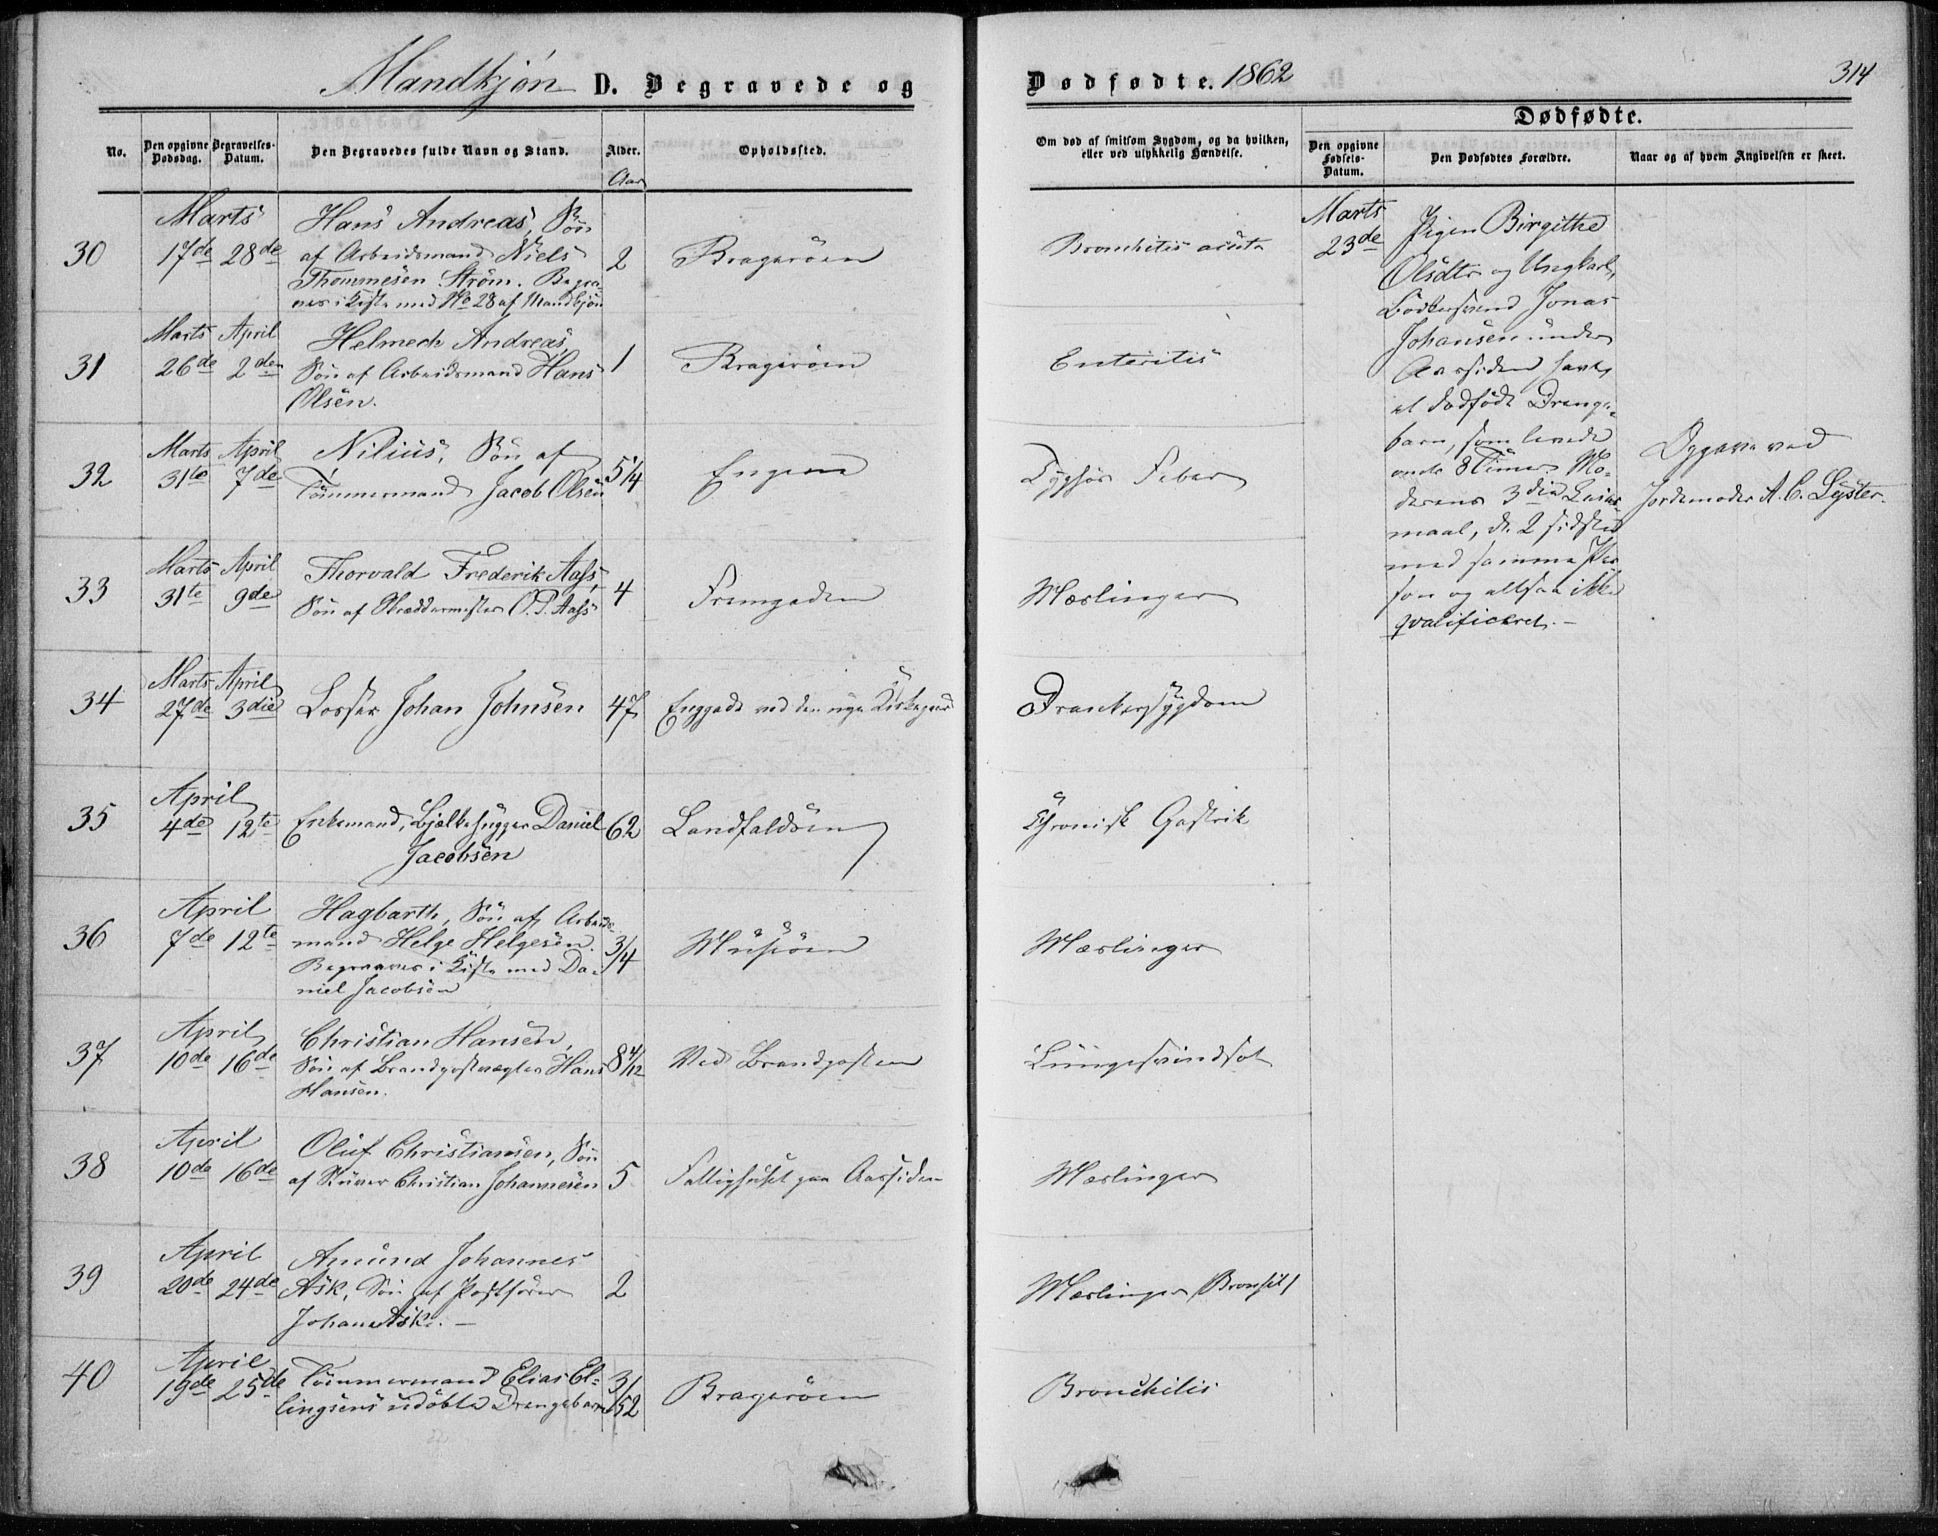 Mandkjøn D. Begravede og
Dødfødte. 1862
314
No.
Den opgivne Dødsdag.
Begravelses-Datum.
Den Begravedes fulde Navn og Stand.
Alder.
Aar
Opholdssted.
Om død af smitsom Sygdom, og da hvilken,
eller ved ulykkelig Hændelse.
Dødfødte.
Den opgivne Fødsels-Datum.
Den Dødfødtes Forældre.
Naar og af hvem Angivelsen er skeet.
30
Marts
17de 28de
Hans Andreas, Søn
af Arbeidsmand Niels
Thommesen Strøm. Begra-
ves i Kiste med No 28 af Mandkjøn
2
Bragerøen
Bronchitis acuta
31
Marts April
26de 2den
Helmech Andreas,
Søn af Arbeidsmand Hans
Olsen.
1
Bragerøen
Enteritis
32
Marts April
31te 7de
Nilius, Søn af
Tømmermand Jacob Olsen
5/4
Engene
Typhøs Feber
33
Marts April
31te 9de
Thorvald Frederik Aass,
Søn af Skræddermester O. P. Aass
4
Fremgaden
Mæslinger
34
Marts April
27de 3die
Losser Johan Johnsen
47
Enggade ved den nye Kirkegaard
Drankersygdom
35
April
4de 12te
Enkemand, Bjælkehugger Daniel
Jacobsen
62
Landfaldøen
Chronisk Gastrik
36
April
7de 12te
Hagbarth, Søn af Arbeids-
mand Helge Helgesen.
Begraves i Kiste med Da-
niel Jacobsen
3/4
Musiøen
Mæslinger
37
April
10de 16de
Christian Hansen,
Søn af Brandpostvægter Hans
Hansen.
8 4/12
Ved Brandposten
Lungesvindsot
38
April
10de 16de
Oluf Christiansen, Søn
af Skriver Christian Johannesen
5
Fattighuset paa Aassiden
Mæslinger
39
April
20de 24de
Amund Johannes
Ask, Søn af Postfører
Johan Ask. —
2
Mæslinger
40
April
19de 25de
Tømmermand Elias El-
lingsens udøbte Drengebarn
3/52
Bragerøen
Bronchitis
Marts
23de
Pigen Birgithe
Olsdtr og Ungkarl,
Bødkersvend Jonas
Johansen under
Aassiden havt
et dødfødt Drenge-
barn, som levede
onde 8 Timer. Mo-
derens 3die Leier-
maal, de 2 sidste
med samme Per
son og altsaa ikke
qvalificeret. —
Opgave ved
Jordemoder A. C. Lyster.